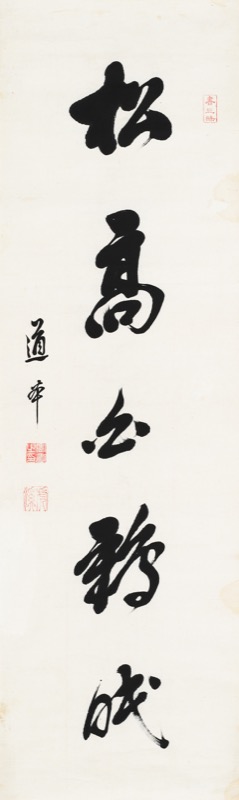 松高白鶴眠
道本